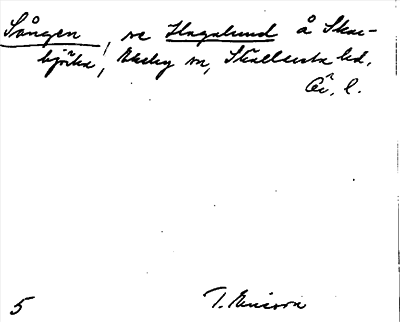 Sången, se Hagalund å Skar-
björka, Ekeby sn, Skallersta hd.
Ör. l.
5 T. Ericson